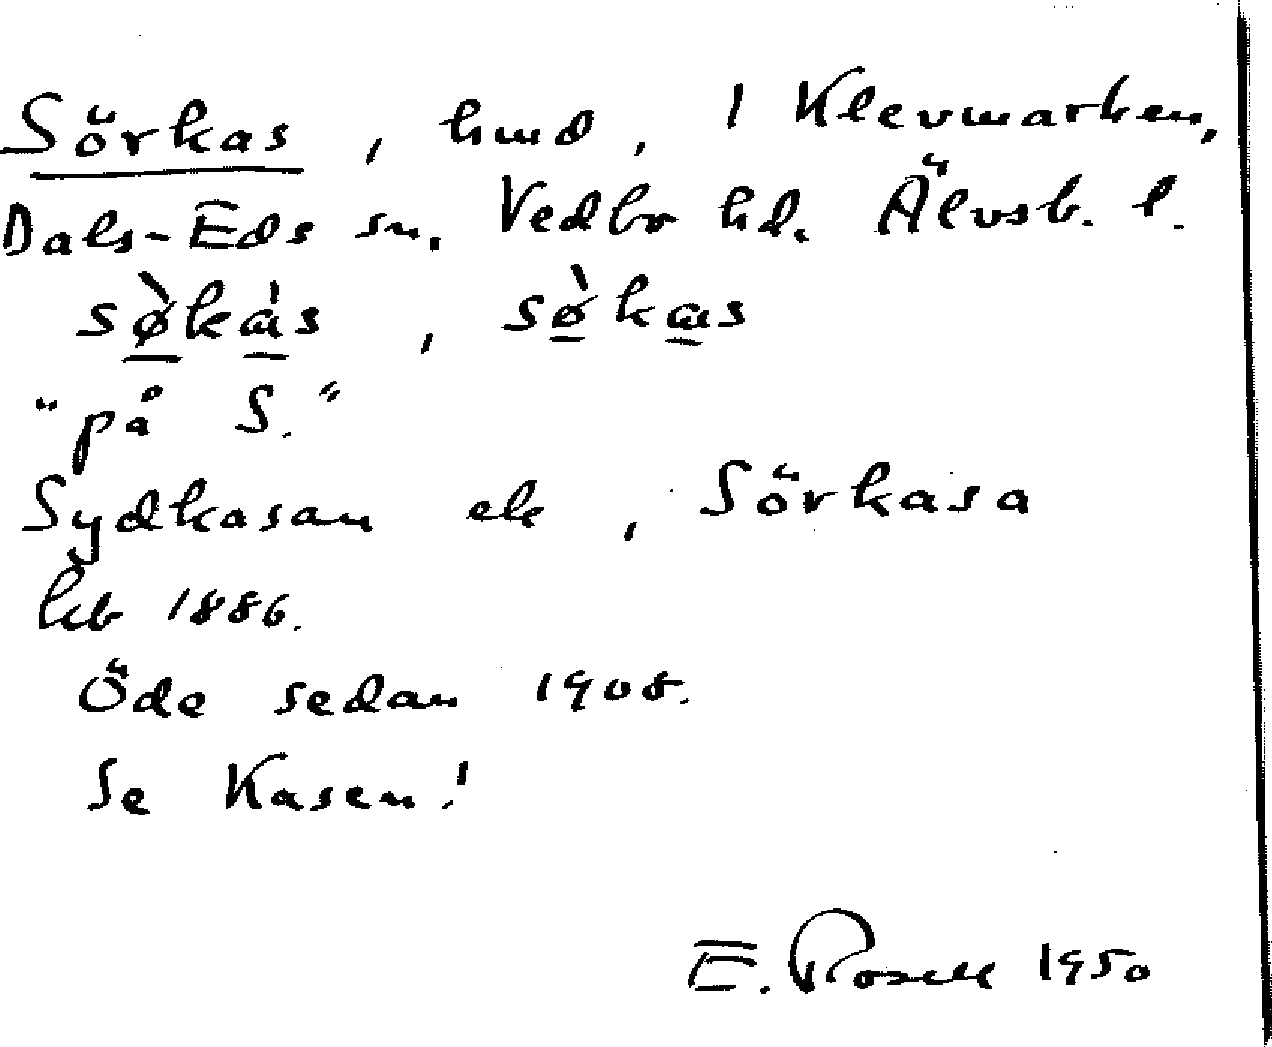 Sörkas, hmd, 1 Klevmarken,
Dals-Eds sn. Vedbo hd. Älvsb. l.
sø̀kás, sø̀kas
"på S."
Sydkasan ek, Sörkasa
lkb 1886.
Öde sedan 1908.
Se Kasen!
E. Rosell 1950